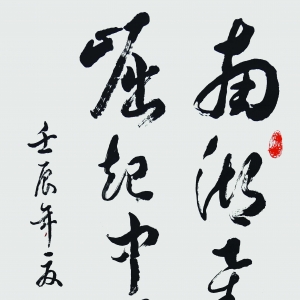 南湖
崛起中
壬辰年夏